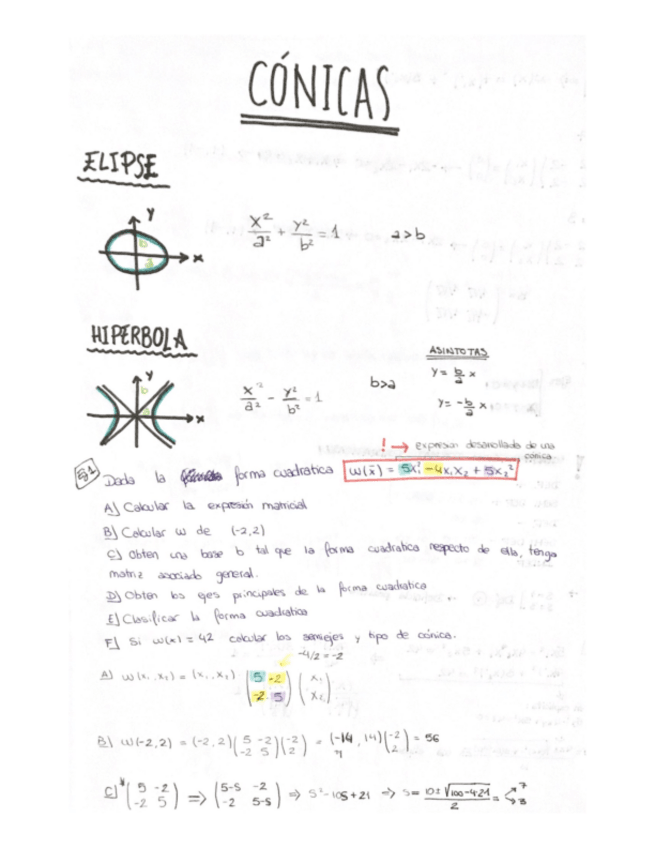 CÓNICAS
ELIPSE
y
b
a
x
x²/a² + y²/b² = 1 a>b
HIPERBOLA
ASINTOTAS
y
b
a
x
x²/a² - y²/b² = 1 b>a
y = b/a x
y = -b/a x
! → expresion desarrollada de una
cónica
Ej1 Dada la forma cuadratica w(x̄) = 5x₁² - 4x₁x₂ + 5x₂²
A) Calcular la expresión matricial
B) Calcular w de (-2,2)
C) Obten una base b tal que la forma cuadratica respecto de ella, tenga
matriz asociada general.
D) Obten los ejes principales de la forma cuadratica
E) Clasificar la forma cuadratica
F) Si w(x) = 42 calcular los semiejes y tipo de cónica.
-4/2 = -2
A) w(x₁, x₂) = (x₁, x₂) (5 -2 / -2 5) (x₁ / x₂)
B) w(-2,2) = (-2,2) (5 -2 / -2 5) (-2 / 2) = (-14, 14) (-2 / 2) = 56
C) * (5 -2 / -2 5) ⇒ (5-s -2 / -2 5-s) ⇒ s² - 10s + 21 ⇒ s = 10 ± √100-4·21 / 2 = 7 3